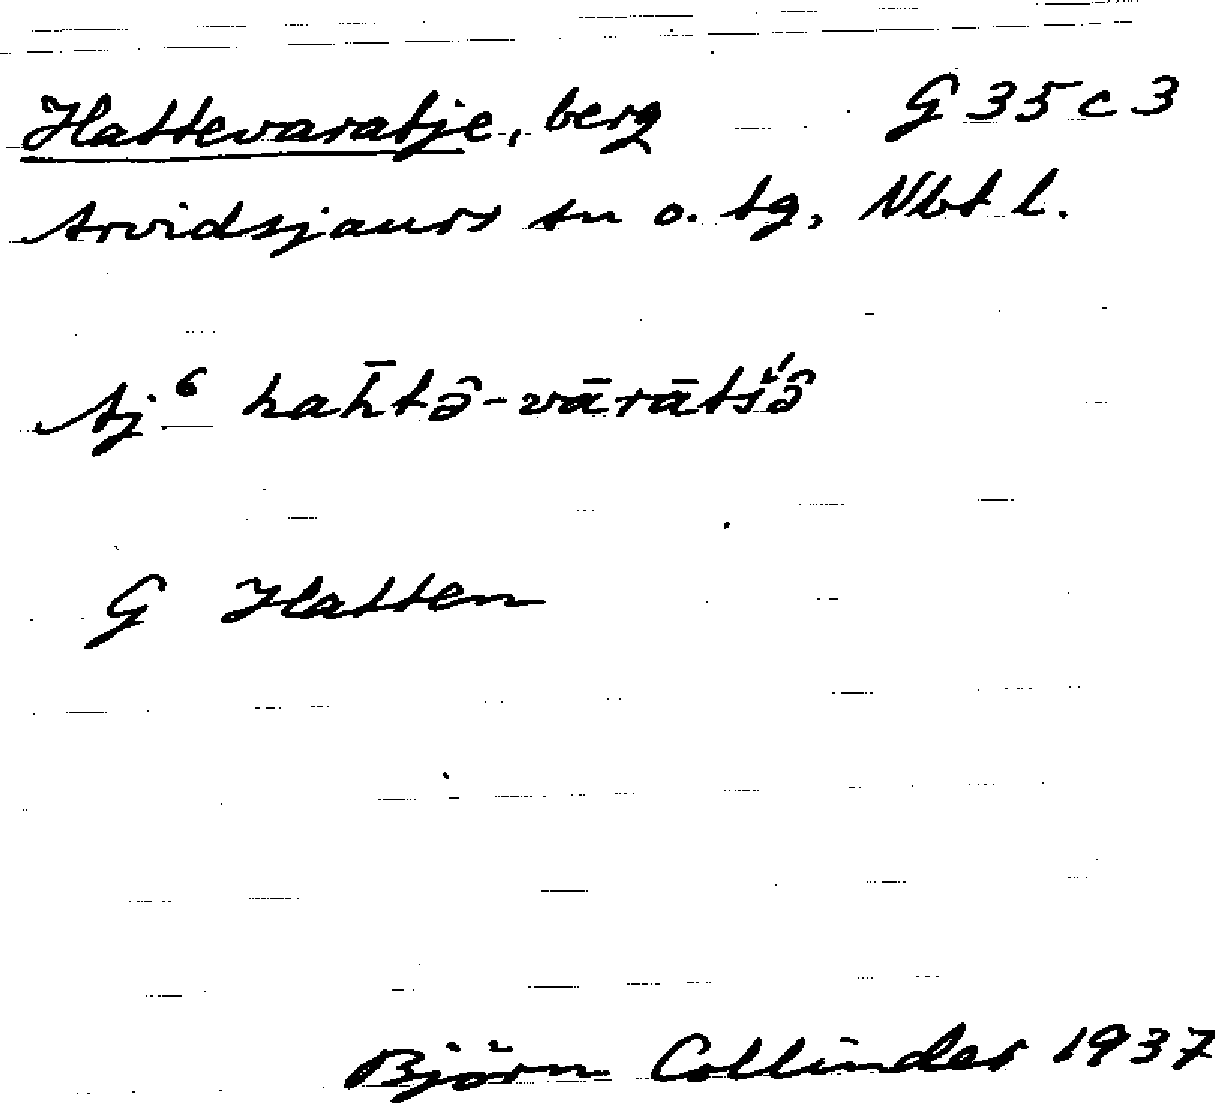 Hattevaratje, berg G 35 c 3
Arvidsjaurs sn o. tg, Nbt l.
Aj 6 hah̄tə̂-vārātś́ə̂
G Hatten
Björn Collinder 1937